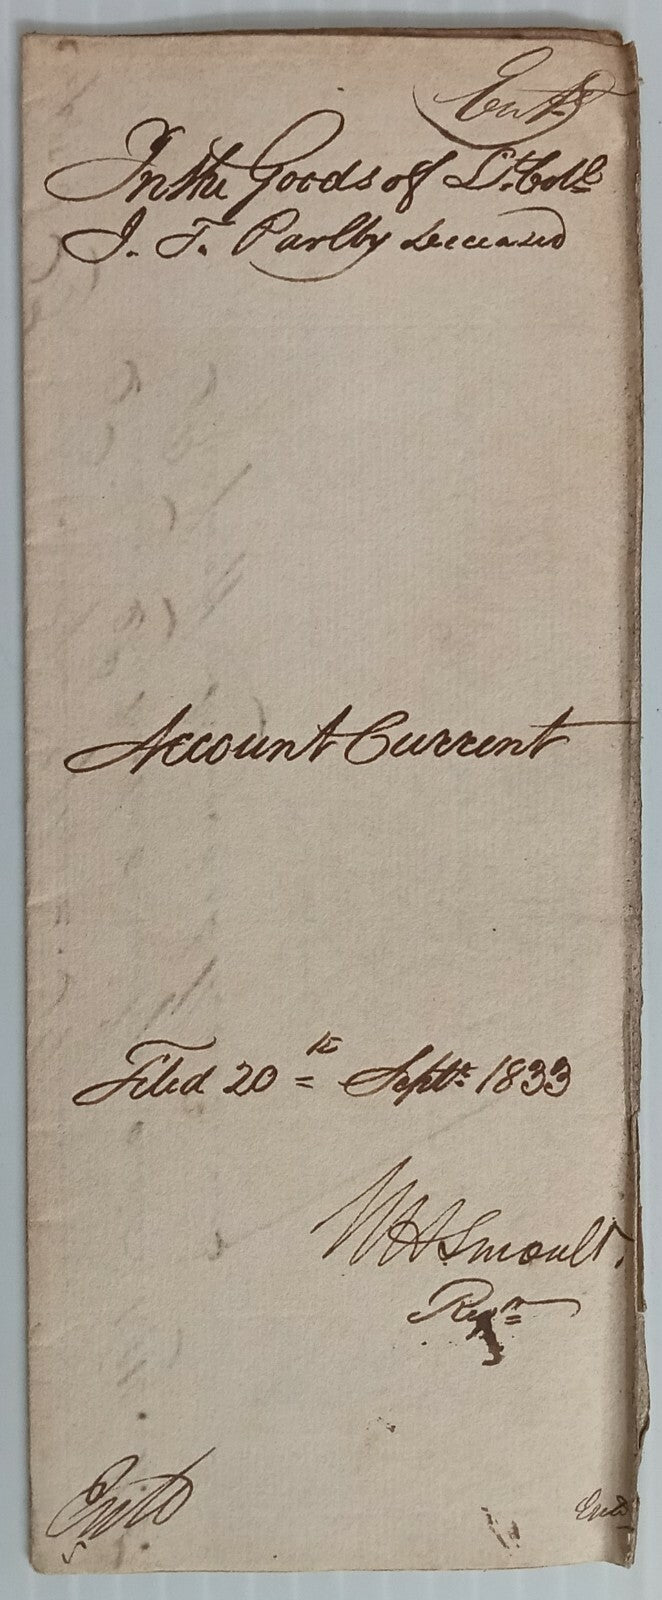 Entd
In the Goods of Lt. Coll
J. F. Parlby deceased
Account Current
Filed 20th Septr 1833
WH Smoult.
Regr
Entd
Entd